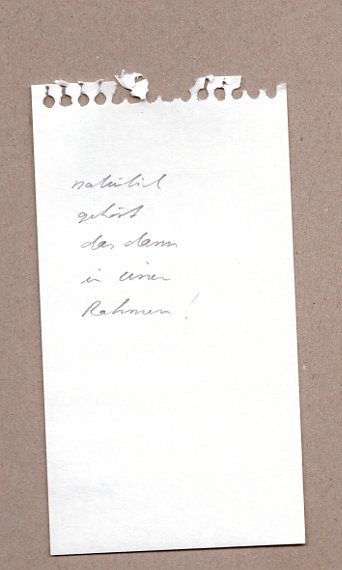 natürlich
gehört
das dann
in einen
Rahmen!